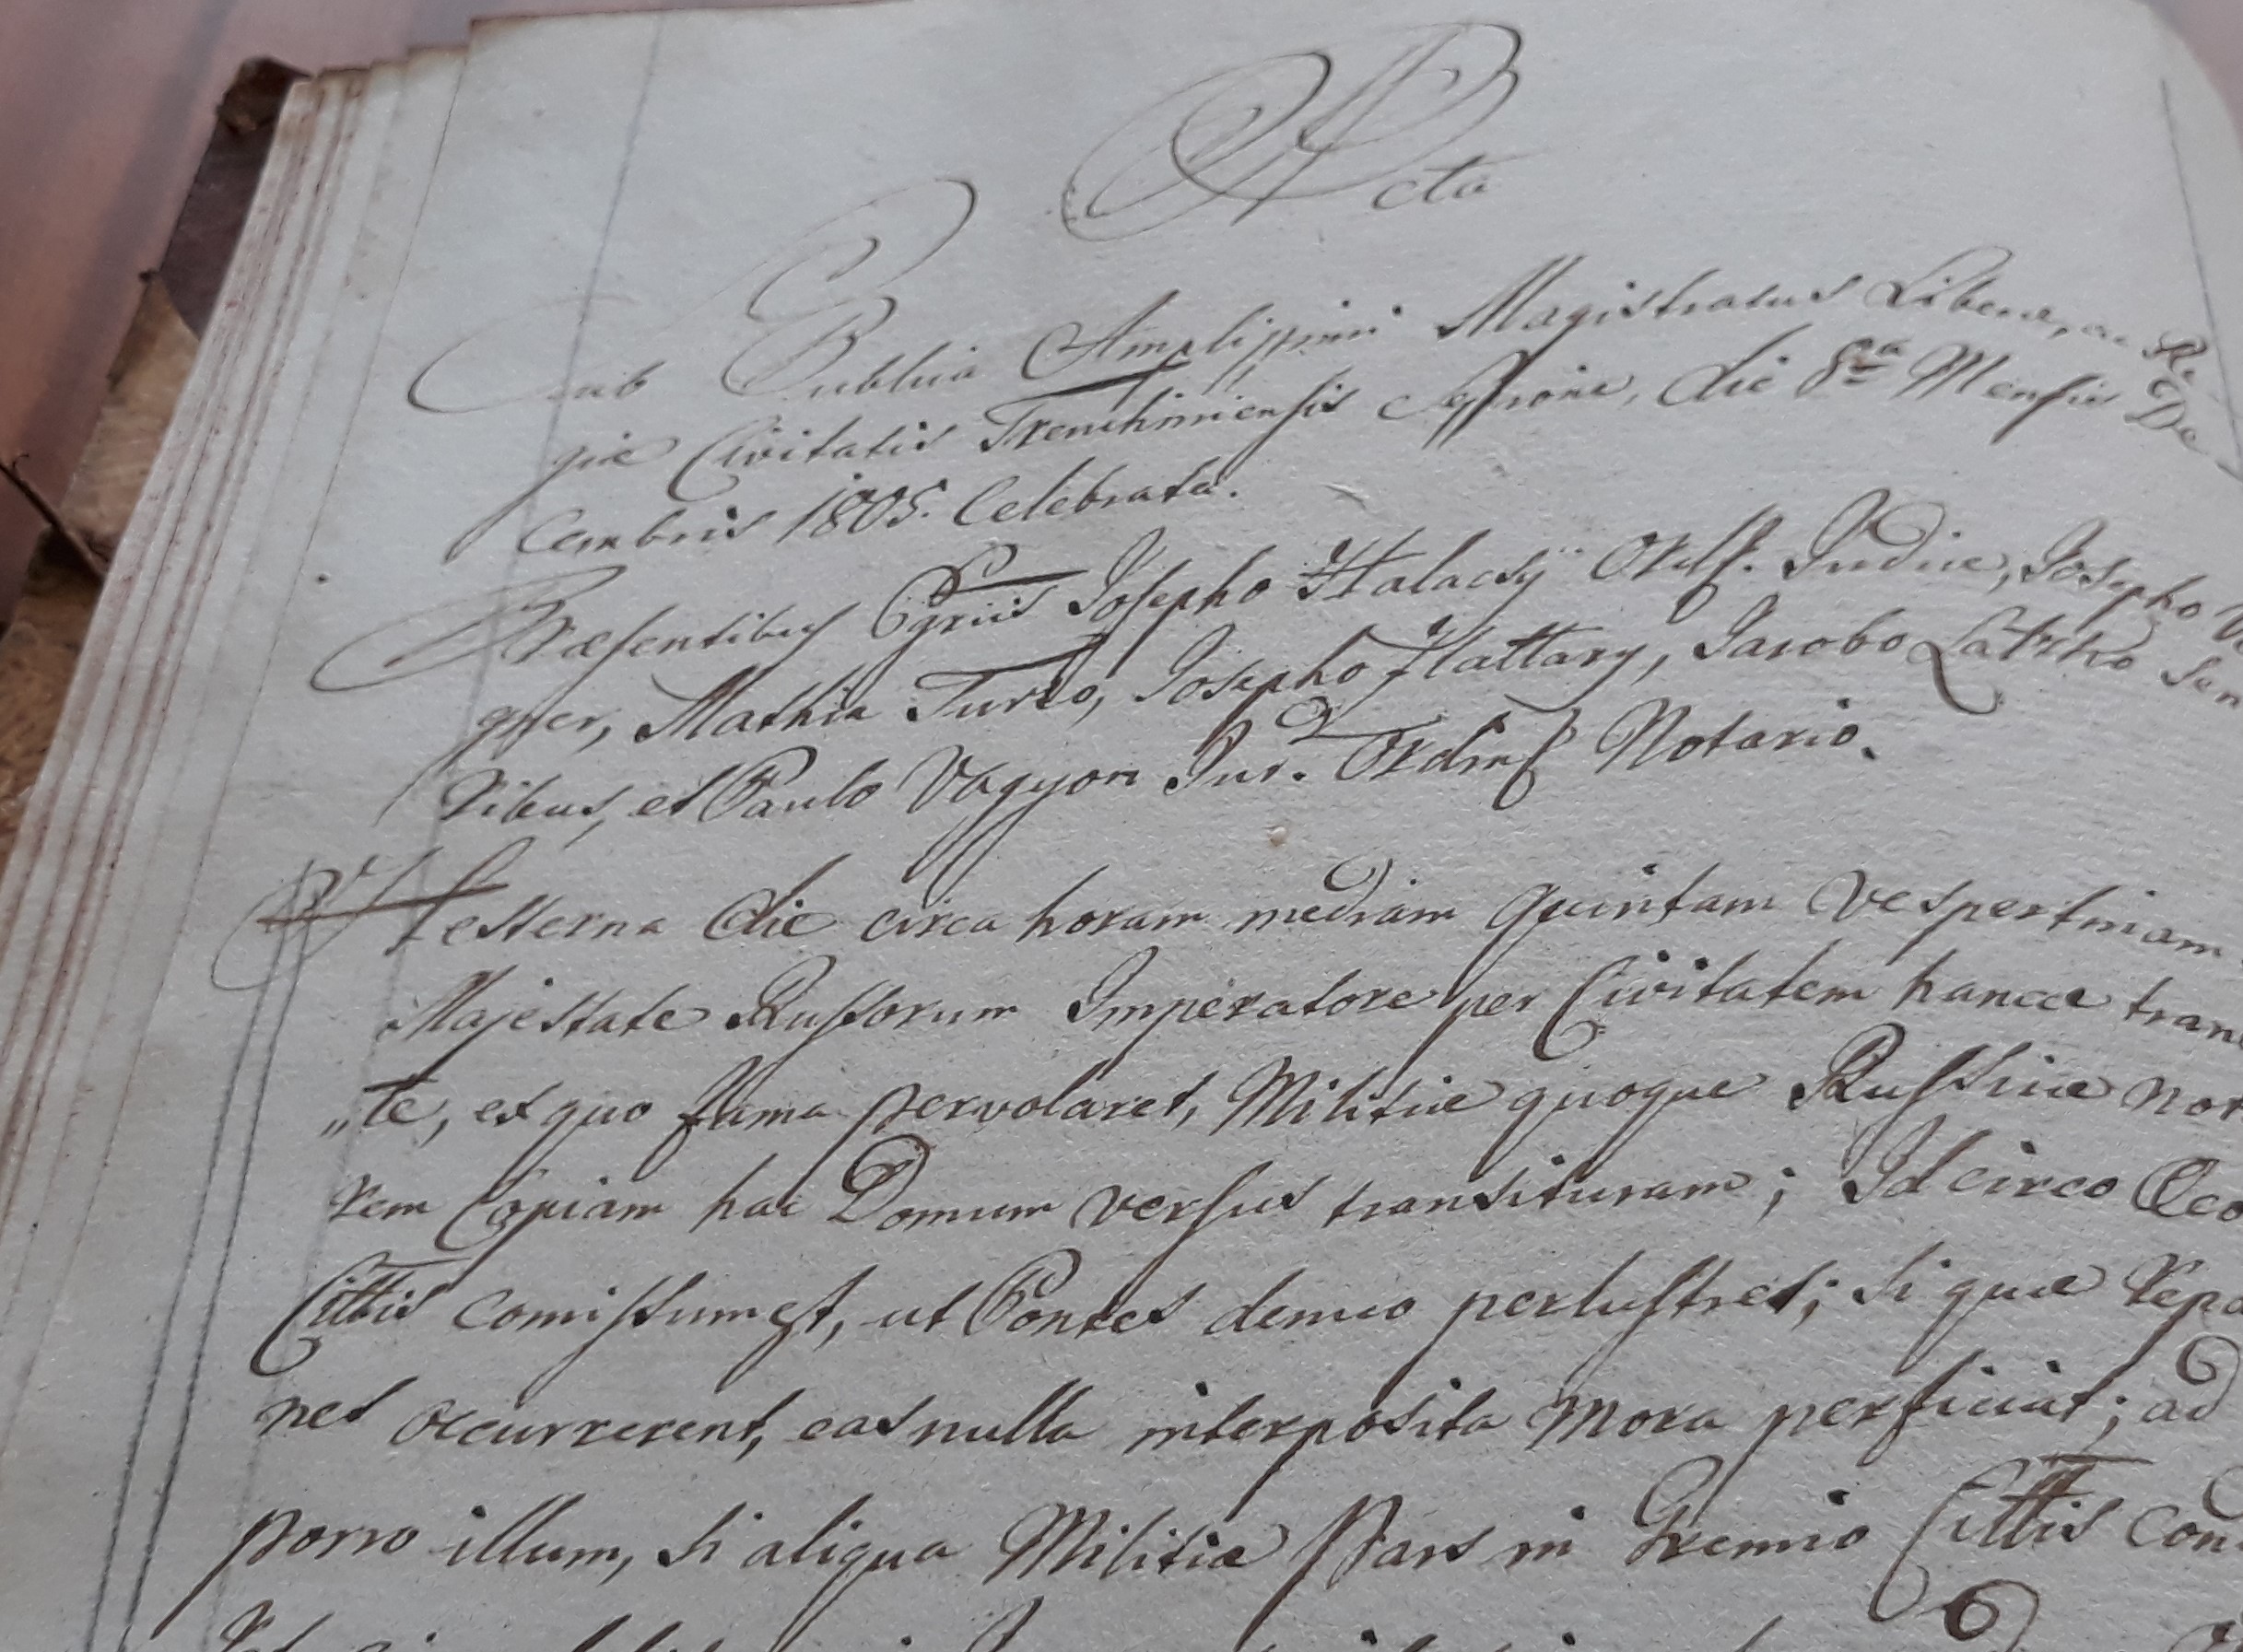 Acta
Sub Publica Amplissimi Magistratus Liberæ, ac Re
giæ Civitatis Trenchiniensis Sessione, die 8va Mensis De
cembris 1805. Celebrata.
Præsentibus Egriis Josepho Halacsÿ Ordss. Judice, Josepho
gner, Mathia Turzo, Josepho Hattary, Jacobo Latzko Sen
ribus, et Paulo Vagyon Jur. Ordinr Notario.
Hesterna die circa horam mediam quintam Vespertinam
Majestate Russorum Imperatore per Civitatem hancce tran
„te, ex quo fama pervolaret, Militiæ quoque Russicæ non
rem Copiam hac Domum versus transituram; Id circo Oeco
Cittis comissum est, ut Pontes denuo perlustret; si quæ repa
nes occurrerent, eas nulla interposita mora perficiat; ad
porro illum, si aliqua Militiæ Pars in Gremio Cittis con